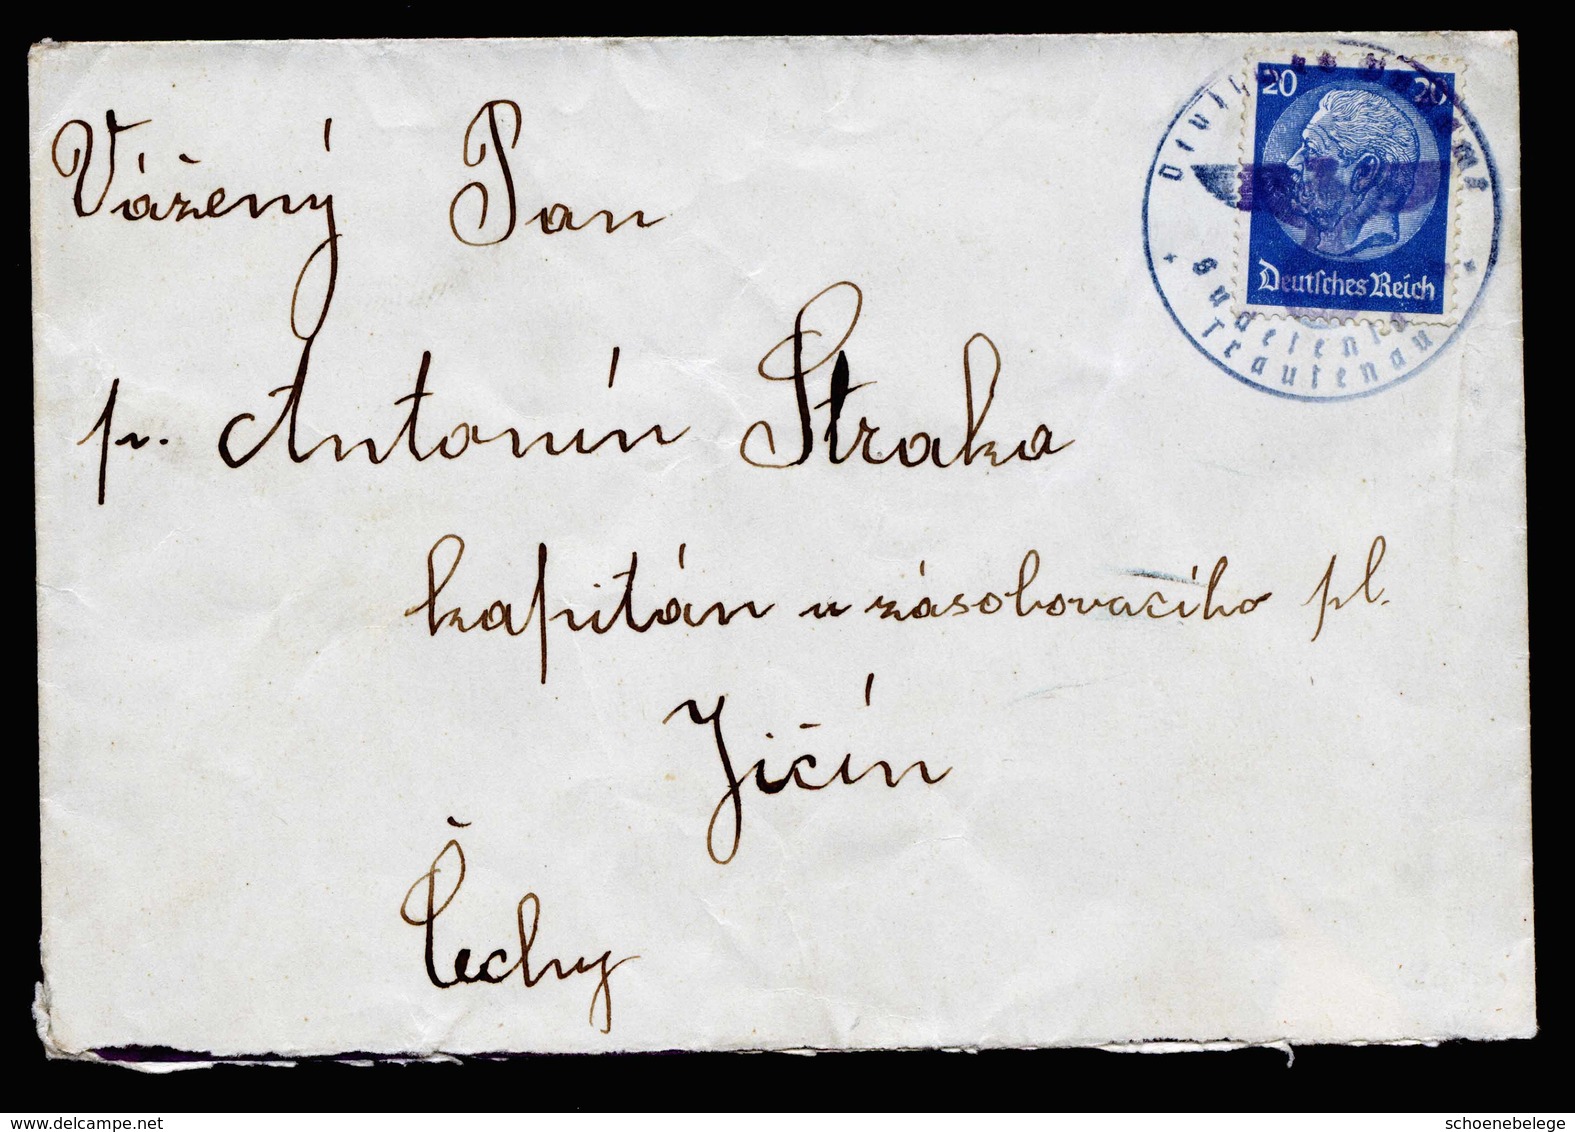 Vážený Pan
p. Antonín Straka
kapitán u zásobovacího pl.
Jičín
Čechy
20 20
Deutsches Reich
Sudetenl
Trautenau
delcampe.net
schoenebelege